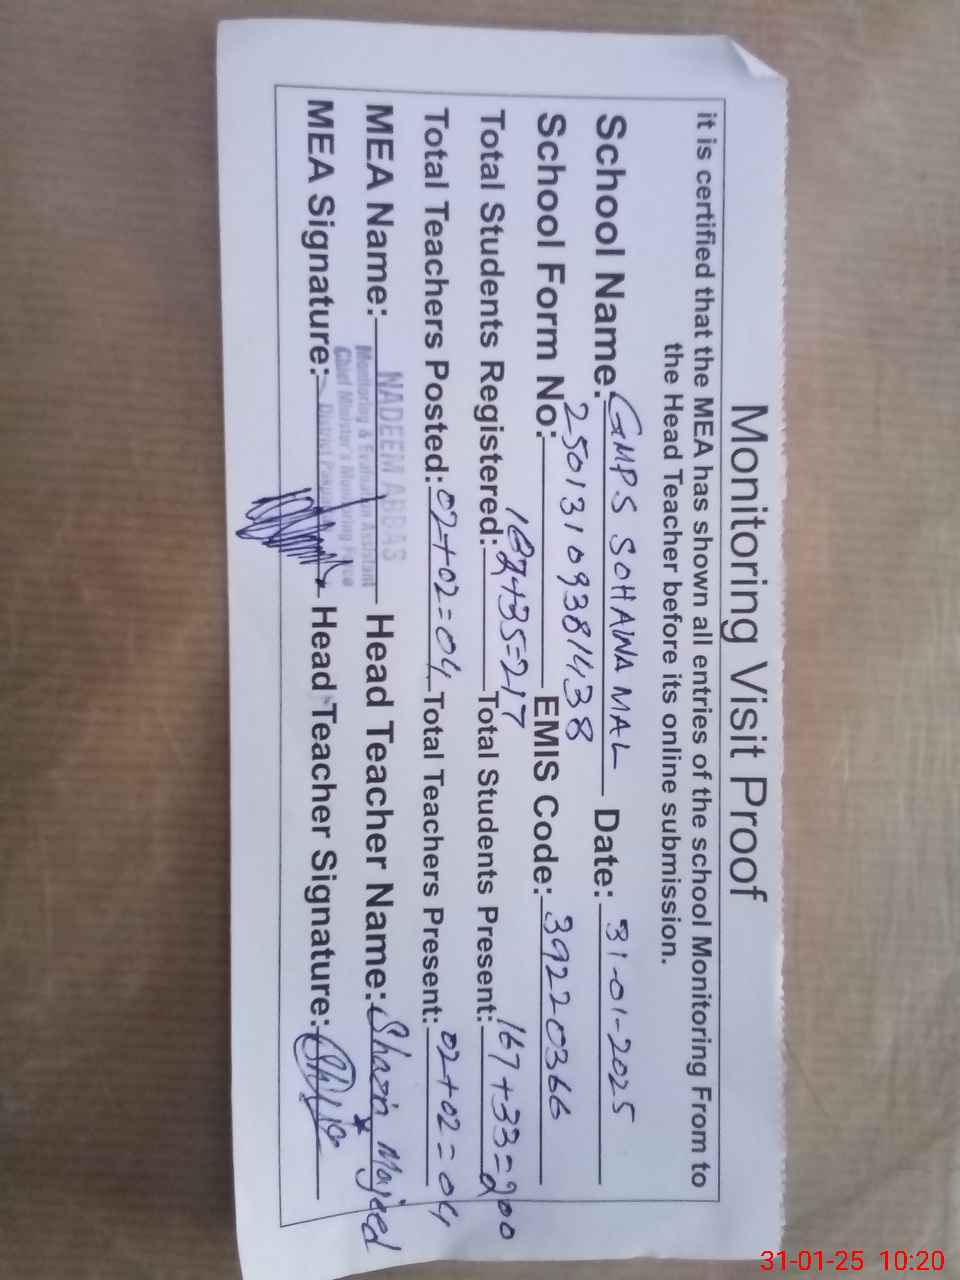 Monitoring Visit Proof
it is certified that the MEA has shown all entries of the school Monitoring From to
the Head Teacher before its online submission.
School Name: GMPS SOHAWA MAL Date: 31-01-2025
School Form No: 25013109381438 EMIS Code: 39220366
Total Students Registered: +35=217 Total Students Present: 167+33=200
Total Teachers Posted: 02+02=04 Total Teachers Present: 02+02=04
MEA Name: NADEEM ABBAS Head Teacher Name: Majeed
Monitoring & Evaluation Assistant
Chief Minister's Monitoring Force
MEA Signature: District Head Teacher Signature:
31-01-25 10:20